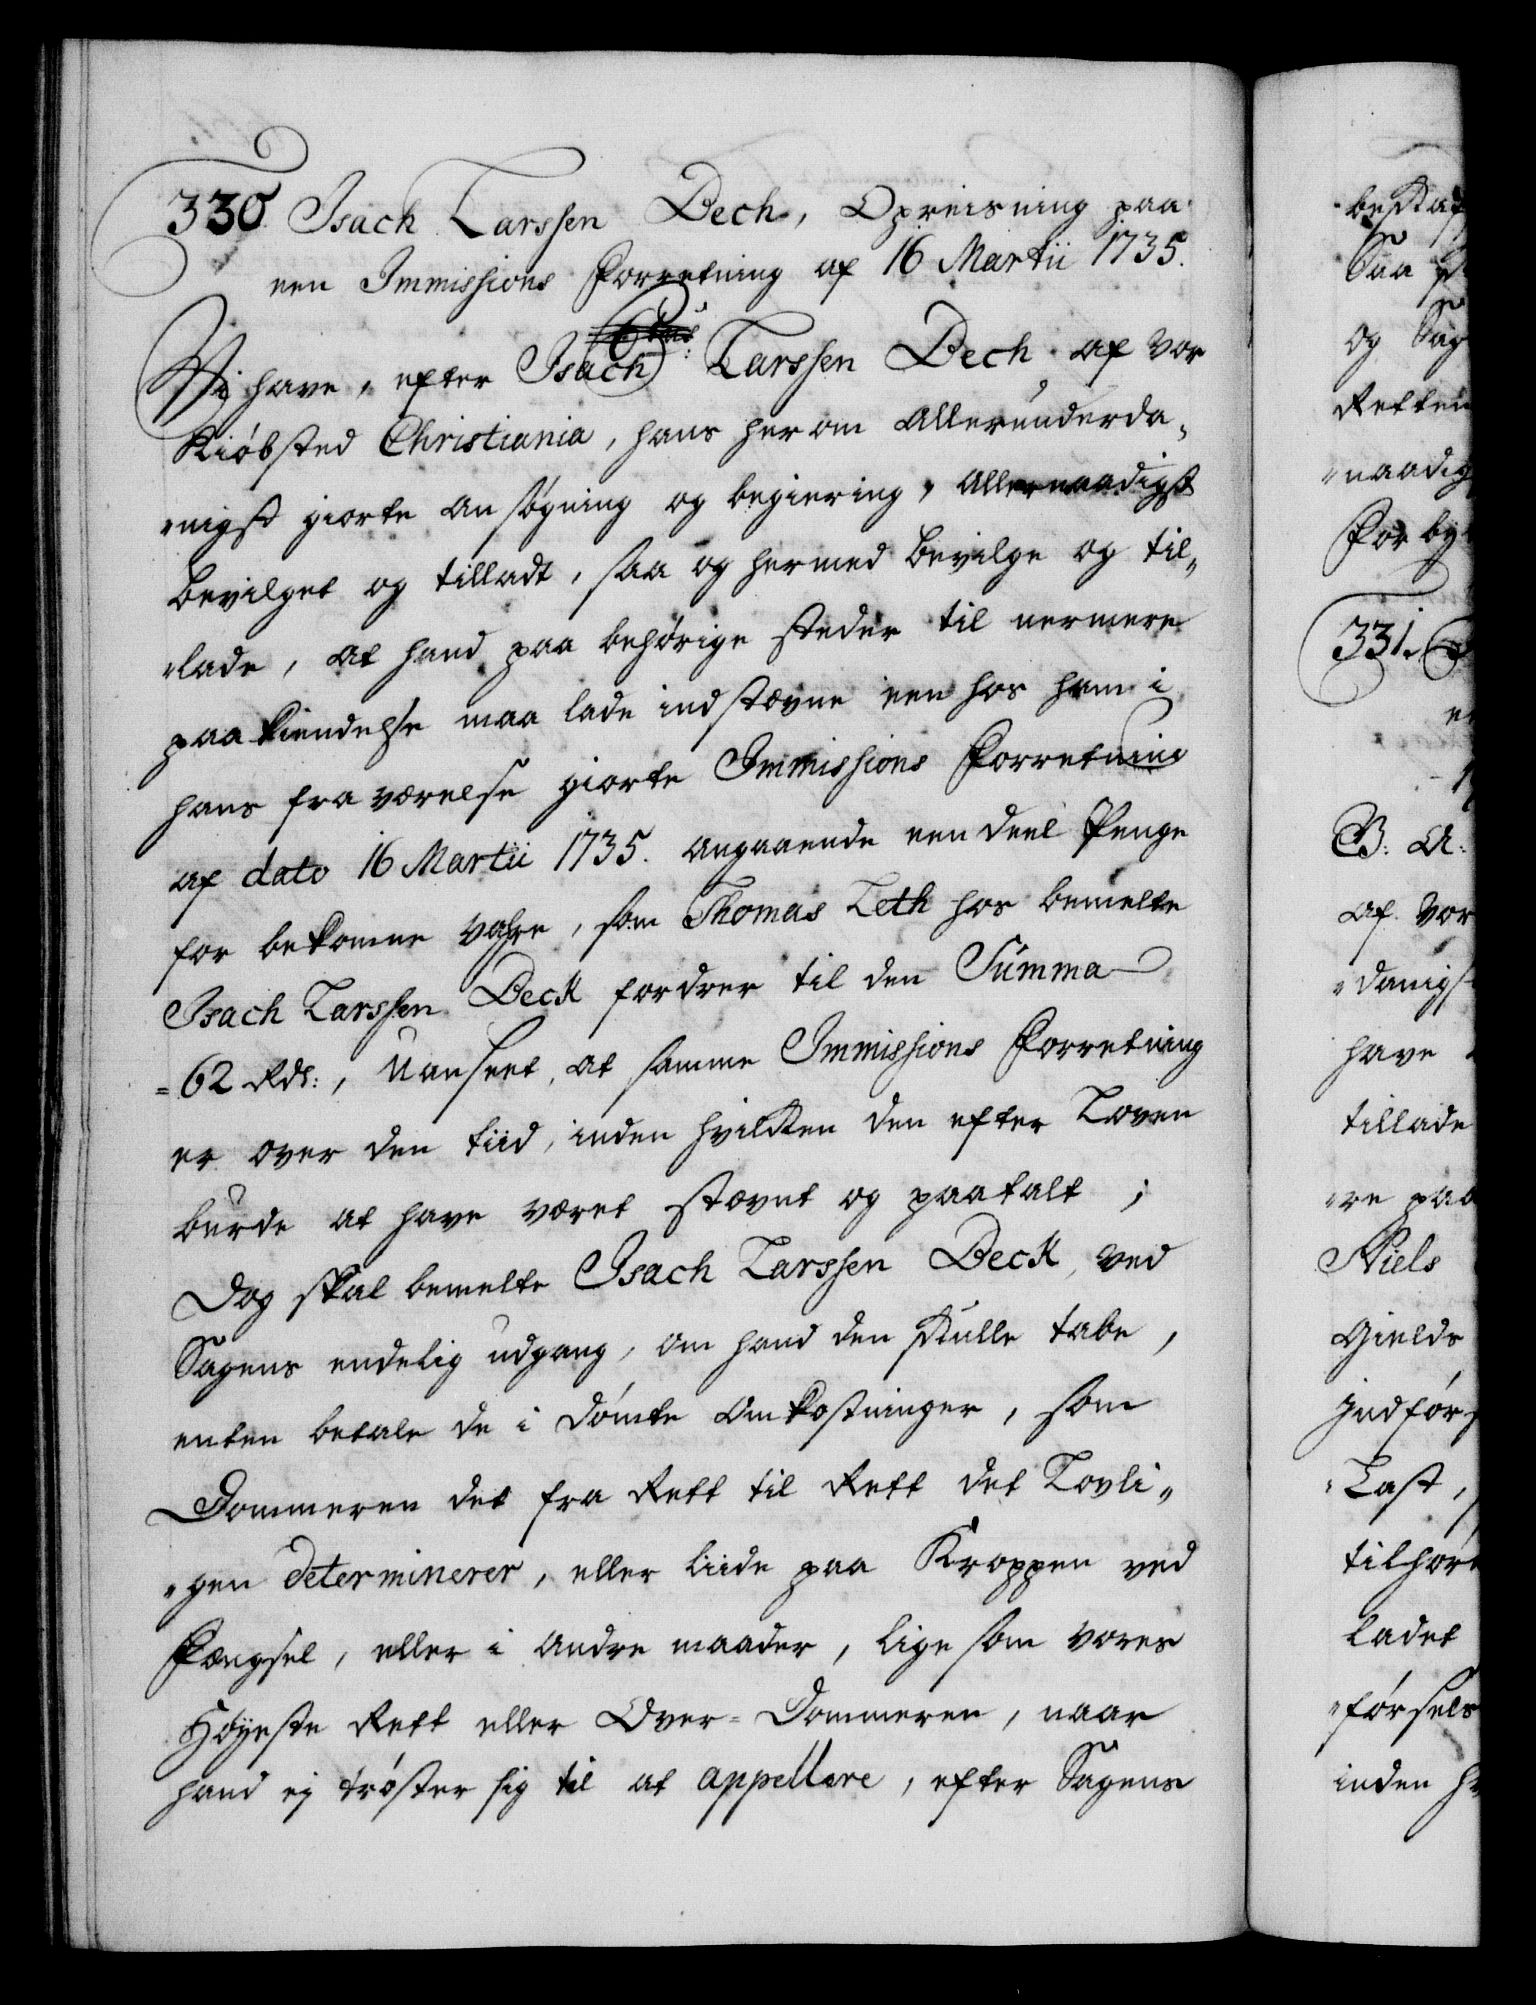 330. Isach Larssen Bech, Opreisning paa
een Immissions Forretning af 16 Martii 1735.
Wi have, efter Isach Larssen Bech af vor
Kiöbsted Christiania, hans herom Allerunderda„
„nigst giorte ansögning og begiering, Allernaadigst
bevilget og tilladt, saa og hermed bevilge og til„
„lade, at hand paa behörige steder til nermere
paakiendelse maa lade indstævne een hos ham i
hans fraværelse giorte Immissions Forretning
af dato 16 Martii 1735. angaaende een deel Penge
for bekomne vahre, som Thomas Leth hos bemelte
Isach Larssen Beck fordrer til den Summa
= 62 Rdr:, Uanseet, at samme Immissions Forretning
er over den tiid, inden hvilken den efter Loven
burde at have været stævnt og paatalt;
Dog skal bemelte Isach Larssen Beck, ved
Sagens endelig udgang, om hand den skulle tabe,
enten betale de i dömte Omkostninger, som
Dommeren det fra Rett til Rett det Lovli„
„gen determinerer, eller liide paa Kroppen ved
Fængsel, eller i andre maader, lige som vores
Höyeste Rett eller Over-Dommeren, naar
hand ej tröster sig til at appellere, efter Sagens
Saa
og Sag
Retten
„naadig
Forby
331.
B: A:
af vor
„danigst
have
tillade
„re paa
Niels
Gields
Indför
Last,
tilhör
ladet
„försels
inden